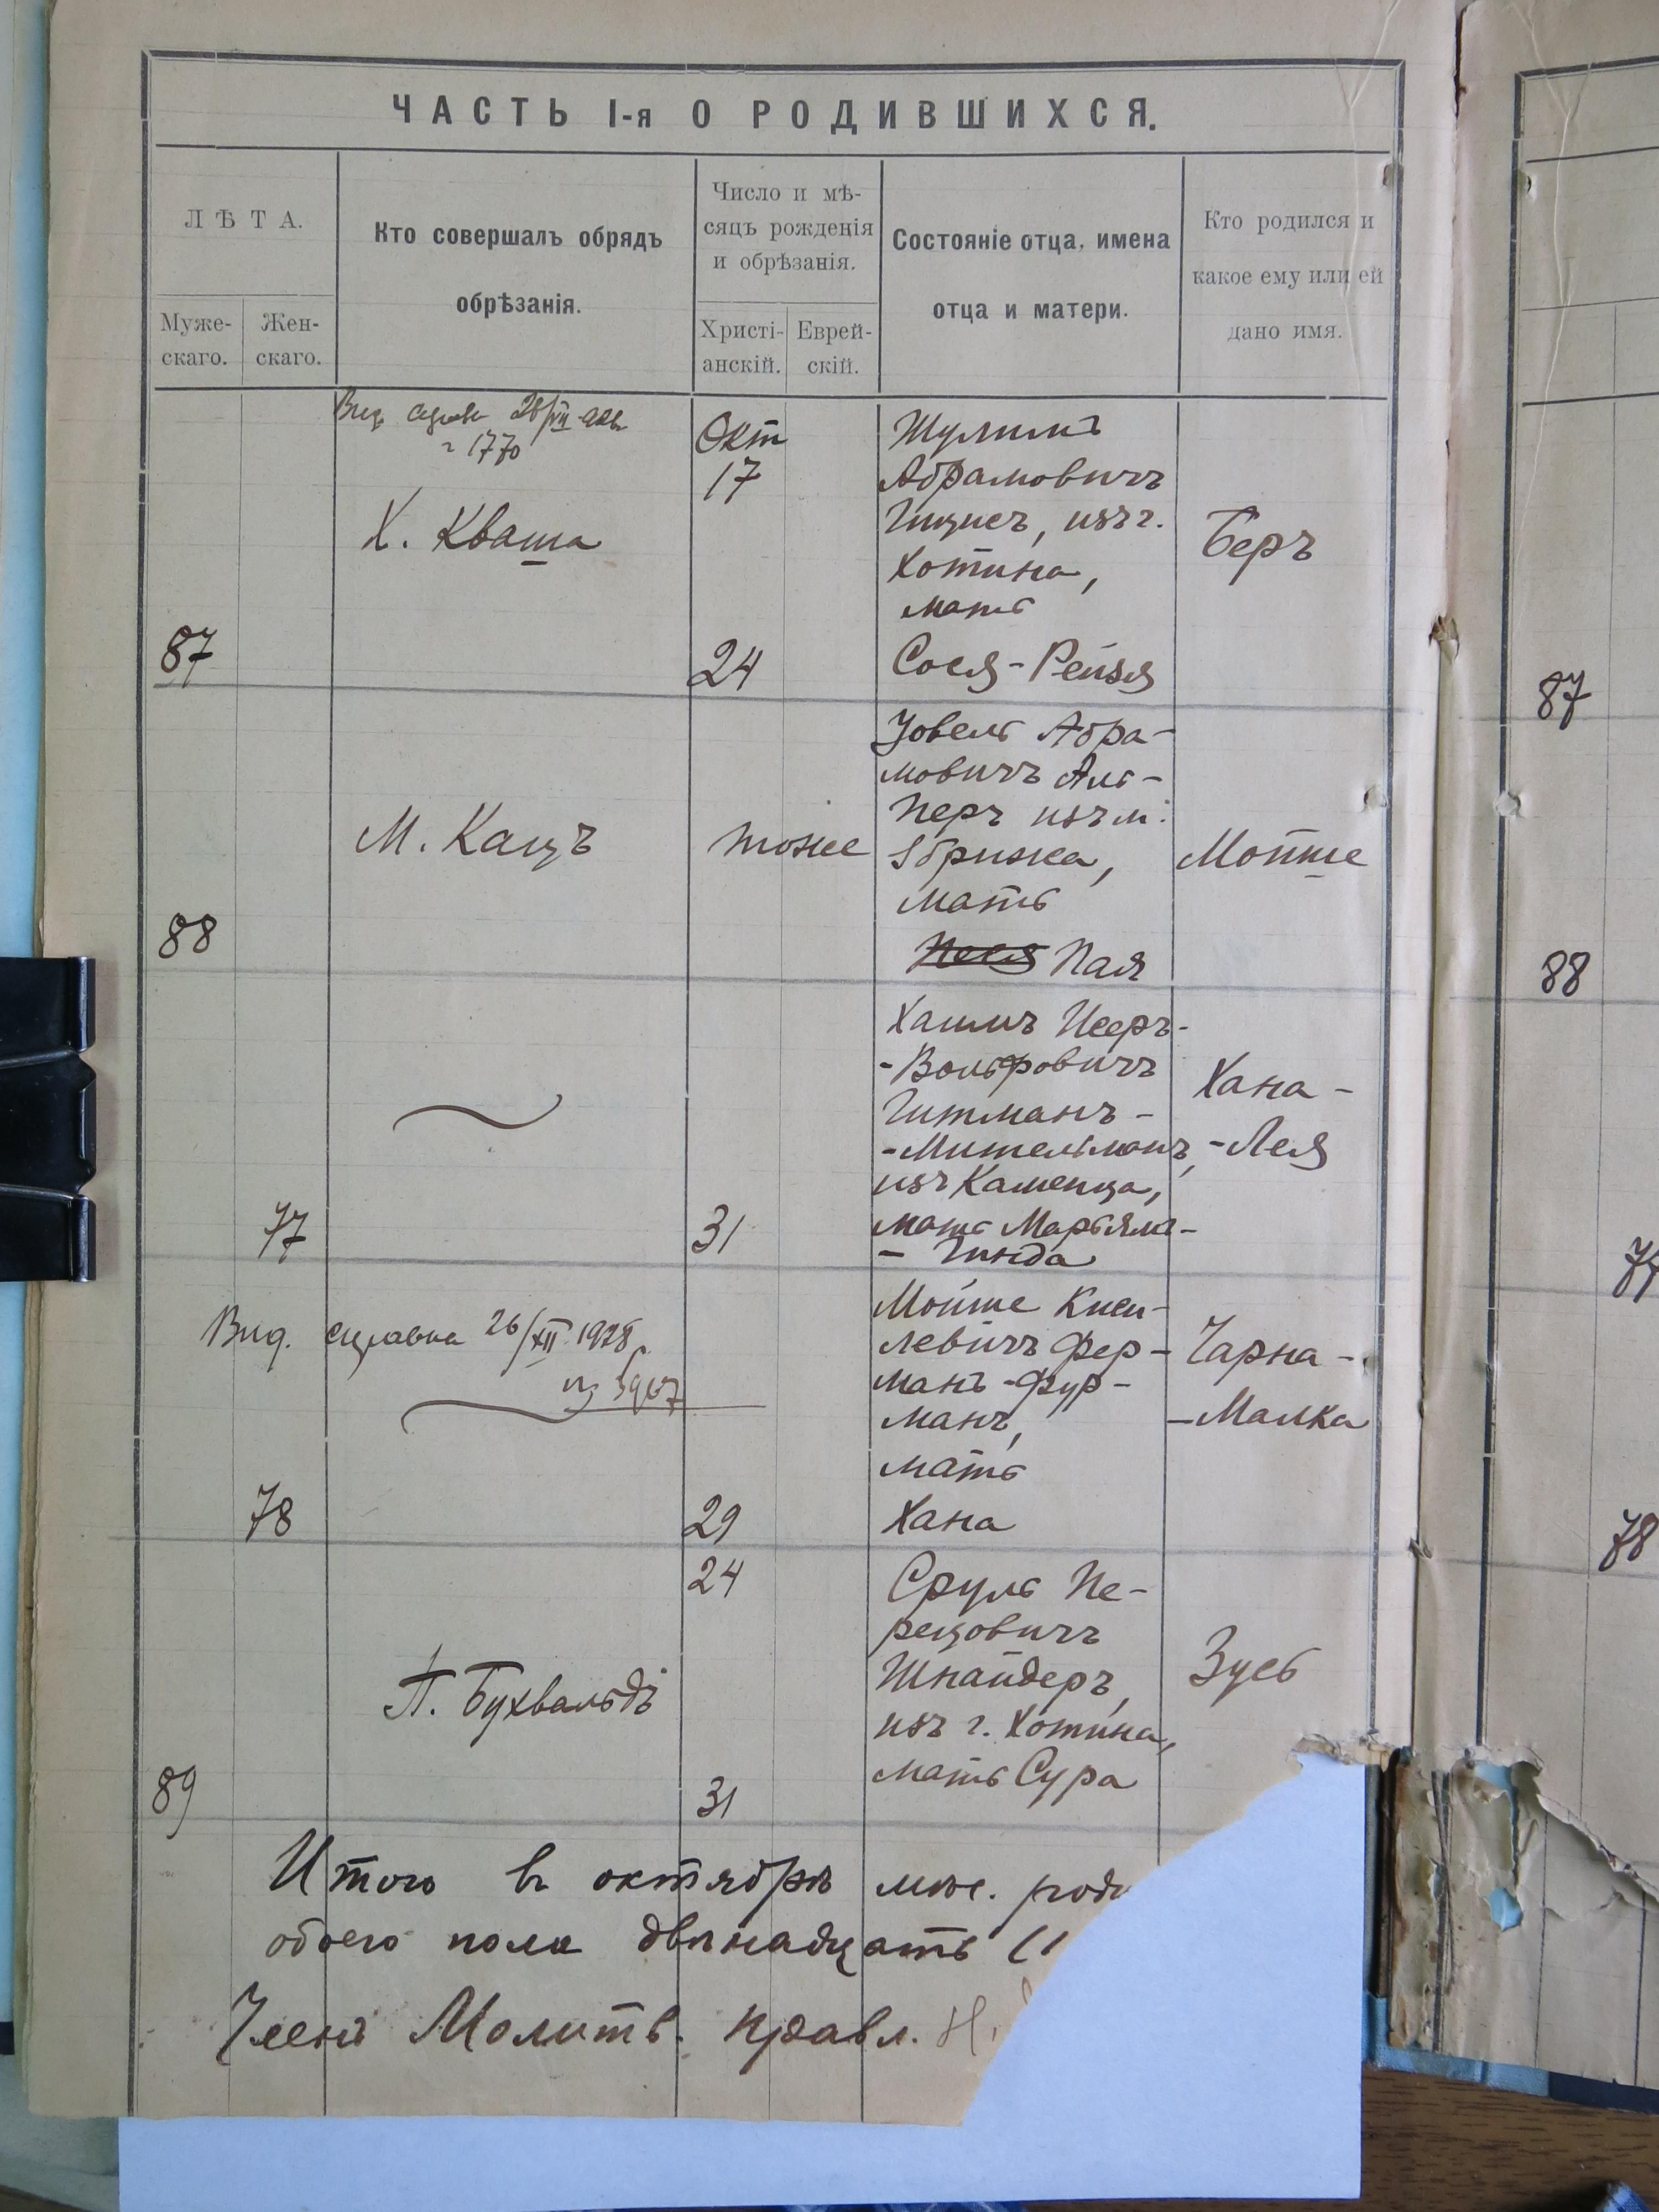 ЧАСТЬ I-я О РОДИВШИХСЯ.
ЛѢТА.
Муже-
скаго.
Жен-
скаго.
Кто совершалъ обрядъ
обрѣзанія.
Число и мѣ-
сяцъ рожденія
и обрѣзанія.
Христі-
анскій.
Еврей-
скій.
Состояніе отца, имена
отца и матери.
Кто родился и
какое ему или ей
дано имя.
87
1770
Х. Кваша
Окт
17
24
Шулимъ
Абрамовичъ
изъ г.
Хотина,
мать
Сося-Рейзя
Беръ
88
М. Кацъ
тоже
Іовель Абра-
мовичъ Аль-
перъ изъ м.
Збрижа,
мать
Пая
Мойше
77
31
Хаимъ Исеръ-
-Вольфовичъ
Гитманъ-
-Мительманъ,
изъ Каменца,
мать Марьямъ-
- Гинда
Хана -
-Лея
Выд. справка 26/XII 1928 г.
78
29
Мойше Киси-
левичъ Фер-
манъ-Фур-
манъ,
мать
Хана
Чарна -
-Малка
89
П. Бухвальдъ
24
31
Сруль Пе-
рецовичъ
Шнайдеръ,
изъ г. Хотина,
мать Сура
Зусь
Итого въ октябрѣ мѣс.
обоего пола двѣнадцать (1
Членъ Молитв. правл.
87
88
78